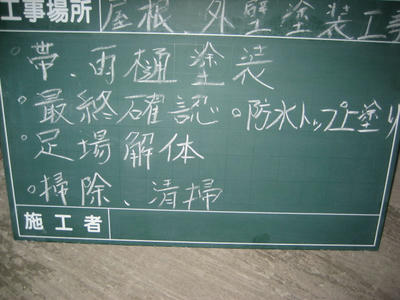 工事場所 屋根、外壁塗装工事
◦帯、雨樋塗装
◦最終確認 ◦防水トップ上塗り
◦足場解体
◦掃除、清掃
施工者